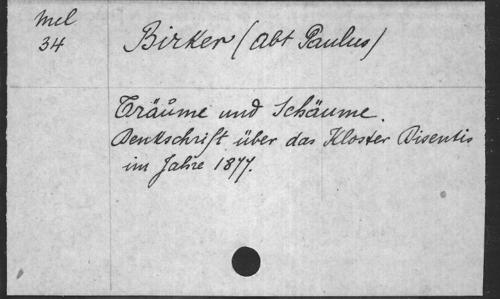 Mel
34
Birker (Abt Paulus)
Träume und Schäume.
Denkschrift über das Kloster Disentis
im Jahre 1877.